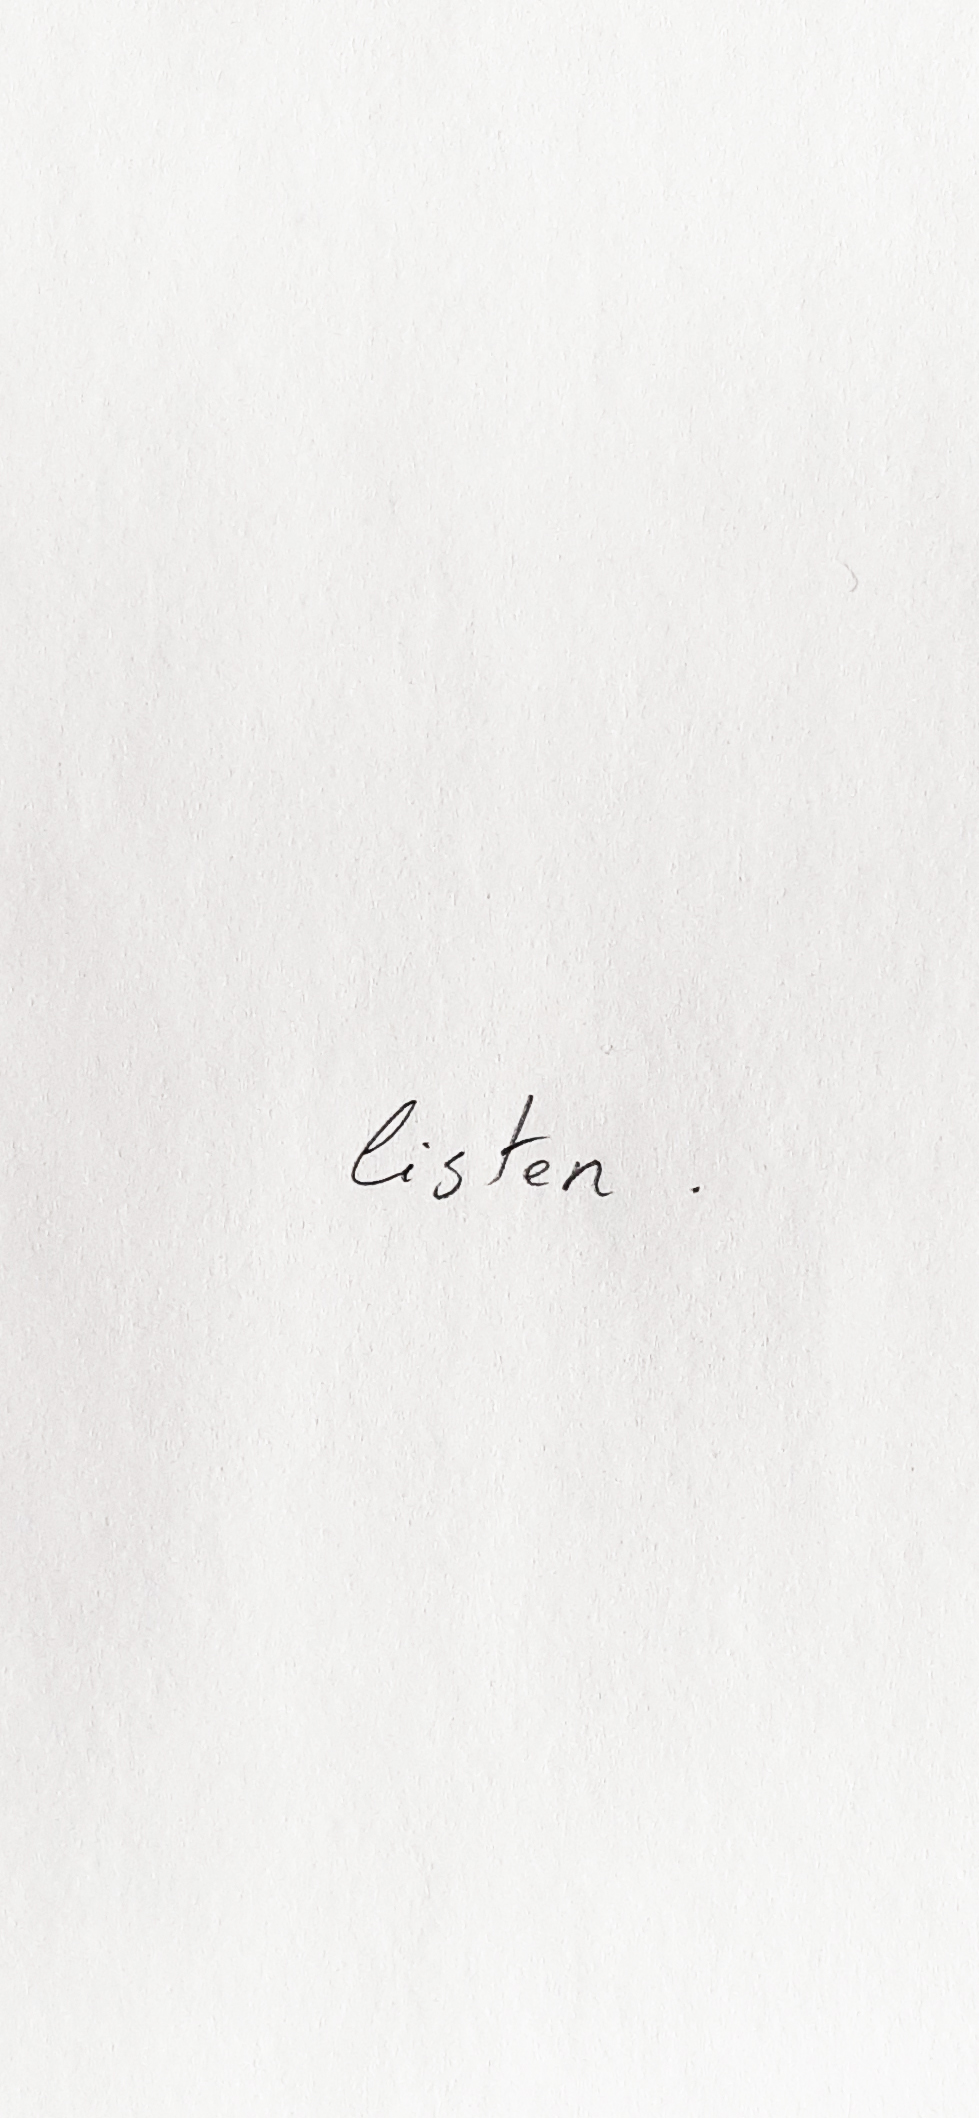 listen .